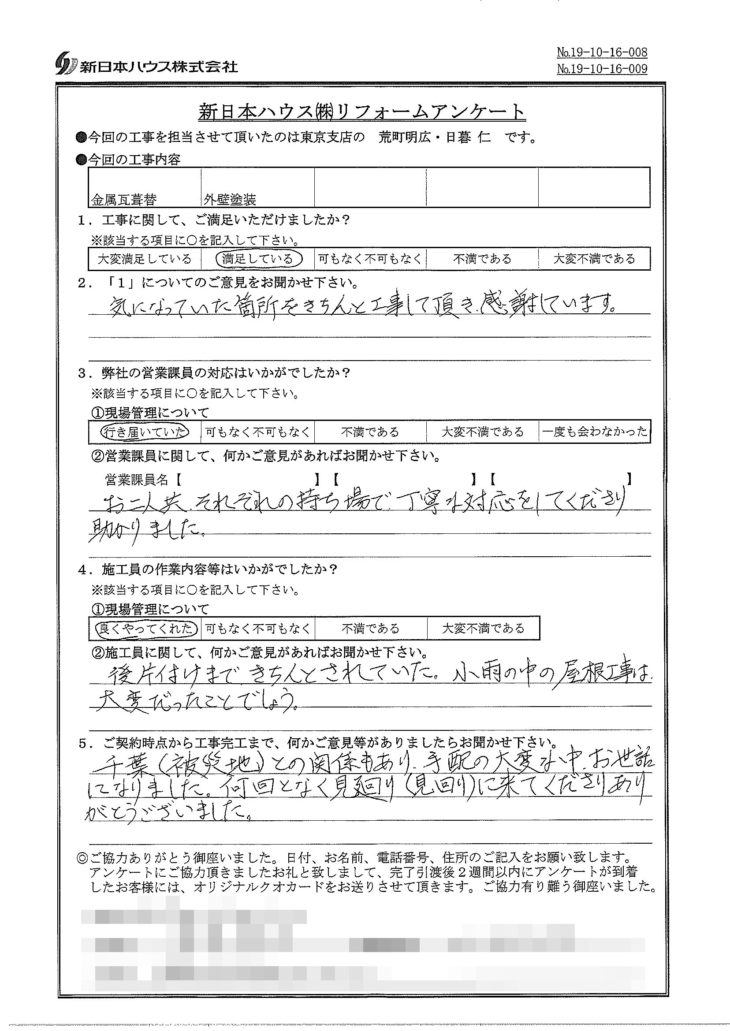 新日本ハウス株式会社
№19-10-16-008
№19-10-16-009
新日本ハウス㈱リフォームアンケート
●今回の工事を担当させて頂いたのは東京支店の 荒町明広・日暮 仁 です。
●今回の工事内容
金属瓦葺替 外壁塗装
１．工事に関して、ご満足いただけましたか？
※該当する項目に○を記入して下さい。
大変満足している 満足している 可もなく不可もなく 不満である 大変不満である
２．「１」についてのご意見をお聞かせ下さい。
気になっていた箇所をきちんと工事して頂き、感謝しています。
３．弊社の営業課員の対応はいかがでしたか？
※該当する項目に○を記入して下さい。
①現場管理について
行き届いていた 可もなく不可もなく 不満である 大変不満である 一度も会わなかった
②営業課員に関して、何かご意見があればお聞かせ下さい。
営業課員名【 】【 】【 】
お二人共、それぞれの持ち場で、丁寧な対応をしてくださり
助かりました。
４．施工員の作業内容等はいかがでしたか？
※該当する項目に○を記入して下さい。
①現場管理について
良くやってくれた 可もなく不可もなく 不満である 大変不満である
②施工員に関して、何かご意見があればお聞かせ下さい。
後片付けまで、きちんとされていた。小雨の中の屋根工事は、
大変だったことでしょう。
５．ご契約時点から工事完工まで、何かご意見等がありましたらお聞かせ下さい。
千葉（被災地）との関係もあり、手配の大変な中、お世話
になりました。何回となく見廻り（見回り）に来てくださりあり
がとうございました。
◎ご協力ありがとう御座いました。日付、お名前、電話番号、住所のご記入をお願い致します。
アンケートにご協力頂きましたお礼と致しまして、完了引渡後２週間以内にアンケートが到着
したお客様には、オリジナルクオカードをお送りさせて頂きます。ご協力有り難う御座いました。